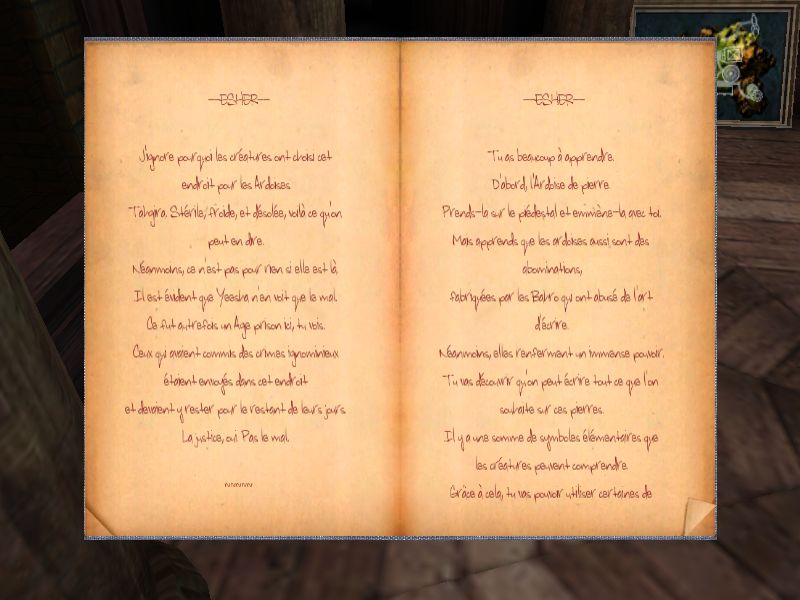 ESHER
J'ignore pourquoi les créatures ont choisi cet
endroit pour les Ardoises.
Tahgira. Stérile, froide, et désolée, voilà ce qu'on
peut en dire.
Néanmoins, ce n'est pas pour rien si elle est là.
Il est évident que Yeesha n'en voit que le mal.
Ce fut autrefois un Age prison ici, tu vois.
Ceux qui avaient commis des crimes ignominieux
étaient envoyés dans cet endroit
et devaient y rester pour le restant de leurs jours.
La justice, oui. Pas le mal.
~~~~~
ESHER
Tu as beaucoup à apprendre.
D'abord, l'Ardoise de pierre.
Prends-la sur le piédestal et emmène-la avec toi.
Mais apprends que les ardoises aussi sont des
abominations,
fabriquées par les Bahro qui ont abusé de l'art
d'écrire.
Néanmoins, elles renferment un immense pouvoir.
Tu vas découvrir qu'on peut écrire tout ce que l'on
souhaite sur ces pierres.
Il y a une somme de symboles élémentaires que
les créatures peuvent comprendre.
Grâce à cela, tu vas pouvoir utiliser certaines de